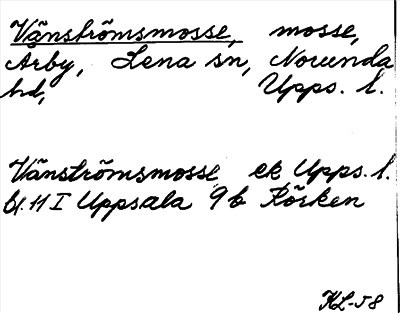 Vänströmsmosse, mosse,
Årby, Lena sn, Norunda
hd, Upps. l.
Vänströmsmosse ek Upps. l.
bl. 11 I Uppsala 9b Rörken
KL-58